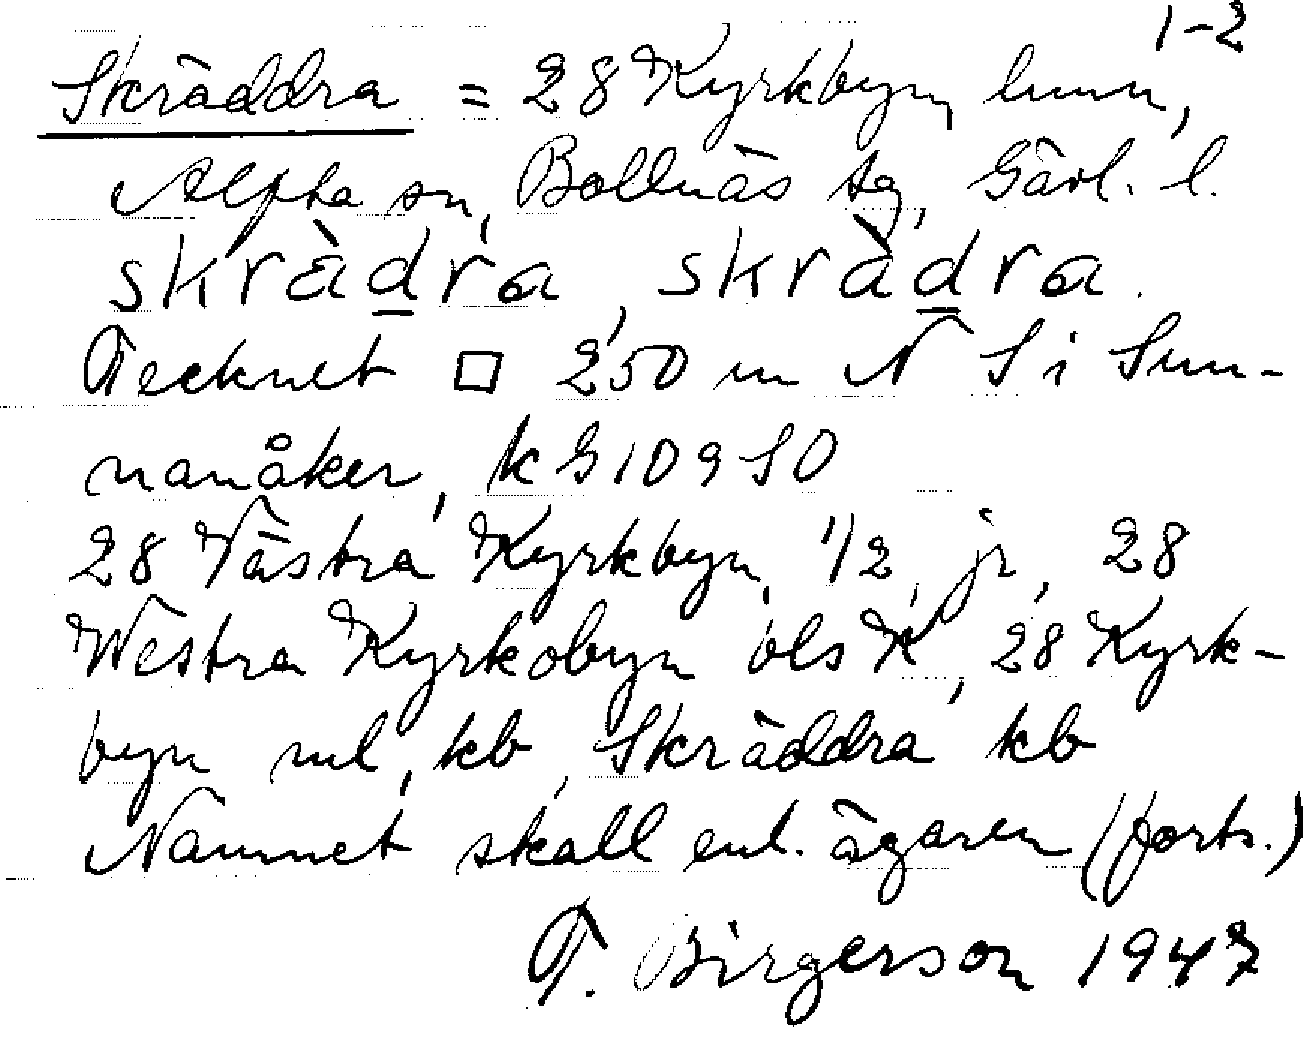 1-2
Skräddra = 28 Kyrkbyn, hmn,
Alfta sn, Bollnäs tg, Gävl. l.
skrädra, skrädra.
Tecknet □ 250 m N S i Sun-
nanåker, k G 109 SO
28 Västra Kyrkbyn, 1/2, jr, 28
Westra Kyrkobyn vls K, 28 Kyrk-
byn ml, kb, Skräddra kb
Namnet skall enl. ägaren (forts.)
T. Birgerson 1947